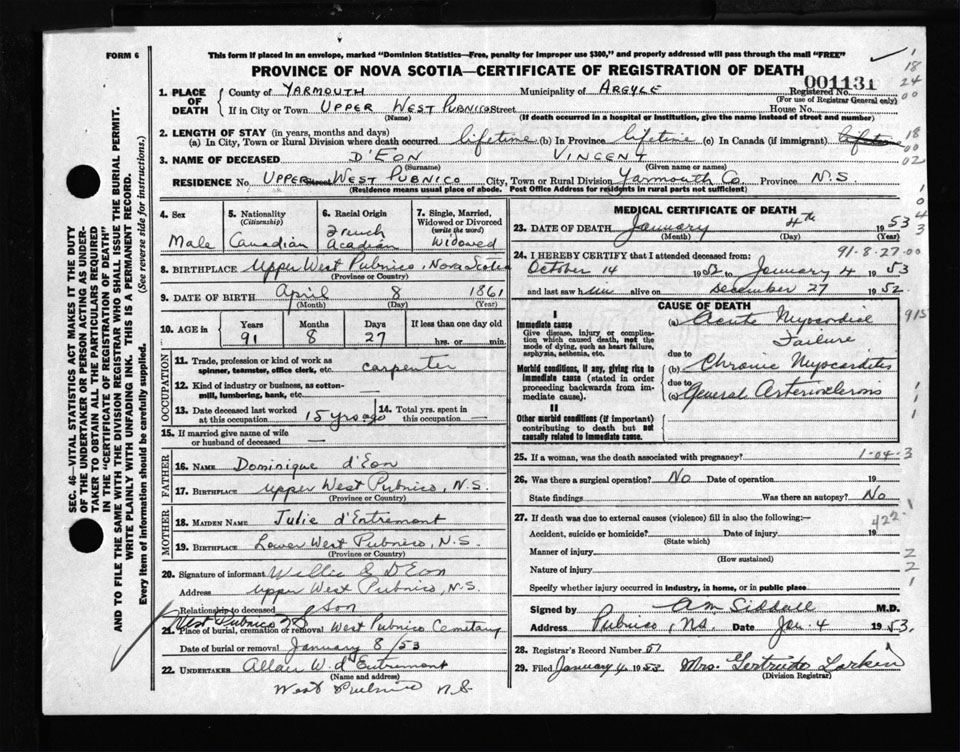 FORM 6
This form if placed in an envelope, marked "Dominion Statistics—Free, penalty for improper use $300," and properly addressed will pass through the mail "FREE"
PROVINCE OF NOVA SCOTIA—CERTIFICATE OF REGISTRATION OF DEATH
001131
1. PLACE OF DEATH
County of YARMOUTH Municipality of ARGYLE Registered No.
(For use of Registrar General only)
If in City or Town UPPER WEST PUBNICO Street House No.
(Name) (If death occurred in a hospital or institution, give the name instead of street and number)
2. LENGTH OF STAY (in years, months and days)
(a) In City, Town or Rural Division where death occurred lifetime (b) In Province lifetime (c) In Canada (if immigrant) lifetime
3. NAME OF DECEASED D'EON VINCENT
(Surname) (Given name or names)
RESIDENCE No. UPPER Street WEST PUBNICO City, Town or Rural Division Yarmouth Co. Province N.S.
(Residence means usual place of abode. Post Office Address for residents in rural parts not sufficient)
4. Sex Male
5. Nationality (Citizenship) Canadian
6. Racial Origin French Acadian
7. Single, Married, Widowed or Divorced (write the word) Widowed
8. BIRTHPLACE Upper West Pubnico, Nova Scotia
(Province or Country)
9. DATE OF BIRTH April 8 1861
(Month) (Day) (Year)
10. AGE in Years Months Days If less than one day old
91 8 27 hrs. or min.
OCCUPATION
11. Trade, profession or kind of work as spinner, teamster, office clerk, etc. carpenter
12. Kind of industry or business, as cotton-mill, lumbering, bank, etc. —
13. Date deceased last worked at this occupation 15 yrs ago
14. Total yrs. spent in this occupation —
15. If married give name of wife or husband of deceased —
FATHER
16. NAME Dominique d'Eon
17. BIRTHPLACE Upper West Pubnico, N.S.
(Province or Country)
MOTHER
18. MAIDEN NAME Julie d'Entremont
19. BIRTHPLACE Lower West Pubnico, N.S.
(Province or Country)
20. Signature of informant Willie D'Eon
Address Upper West Pubnico, N.S.
Relationship to deceased Son
West Pubnico NS
21. Place of burial, cremation or removal West Pubnico Cemetary
Date of burial or removal January 8/53
22. UNDERTAKER Allan W. d'Entremont
(Name and address)
West Pubnico N.S.
MEDICAL CERTIFICATE OF DEATH
23. DATE OF DEATH January 4th 1953
(Month) (Day) (Year)
91-8-27-00
24. I HEREBY CERTIFY that I attended deceased from:
October 14 1952 to January 4 1953
and last saw him alive on December 27 1952.
CAUSE OF DEATH
I
Immediate cause
Give disease, injury or complication which caused death, not the mode of dying, such as heart failure, asphyxia, asthenia, etc.
(a) Acute Myocardial Failure
due to
Morbid conditions, if any, giving rise to immediate cause (stated in order proceeding backwards from immediate cause).
(b) Chronic Myocarditis
due to
(c) General Arteriosclerosis
II
Other morbid conditions (if important) contributing to death but not causally related to immediate cause.
25. If a woman, was the death associated with pregnancy? 1-04-3
26. Was there a surgical operation? No Date of operation 19
State findings Was there an autopsy? No
27. If death was due to external causes (violence) fill in also the following:— 422.1
Accident, suicide or homicide? Date of injury 19
(State which)
Manner of injury
(How sustained)
Nature of injury
Specify whether injury occurred in industry, in home, or in public place
Signed by A M Siddall M.D.
Address Pubnico, N.S. Date Jan. 4 1953.
28. Registrar's Record Number 01
29. Filed January 4, 1953 Mrs. Gertrude Larkin
(Division Registrar)
SEC. 46—VITAL STATISTICS ACT MAKES IT THE DUTY
OF THE UNDERTAKER OR PERSON ACTING AS UNDER-
TAKER TO OBTAIN ALL THE PARTICULARS REQUIRED
IN THE "CERTIFICATE OF REGISTRATION OF DEATH"
AND TO FILE THE SAME WITH THE DIVISION REGISTRAR WHO SHALL ISSUE THE BURIAL PERMIT.
WRITE PLAINLY WITH UNFADING INK. THIS IS A PERMANENT RECORD.
Every item of information should be carefully supplied. (See reverse side for instructions.)